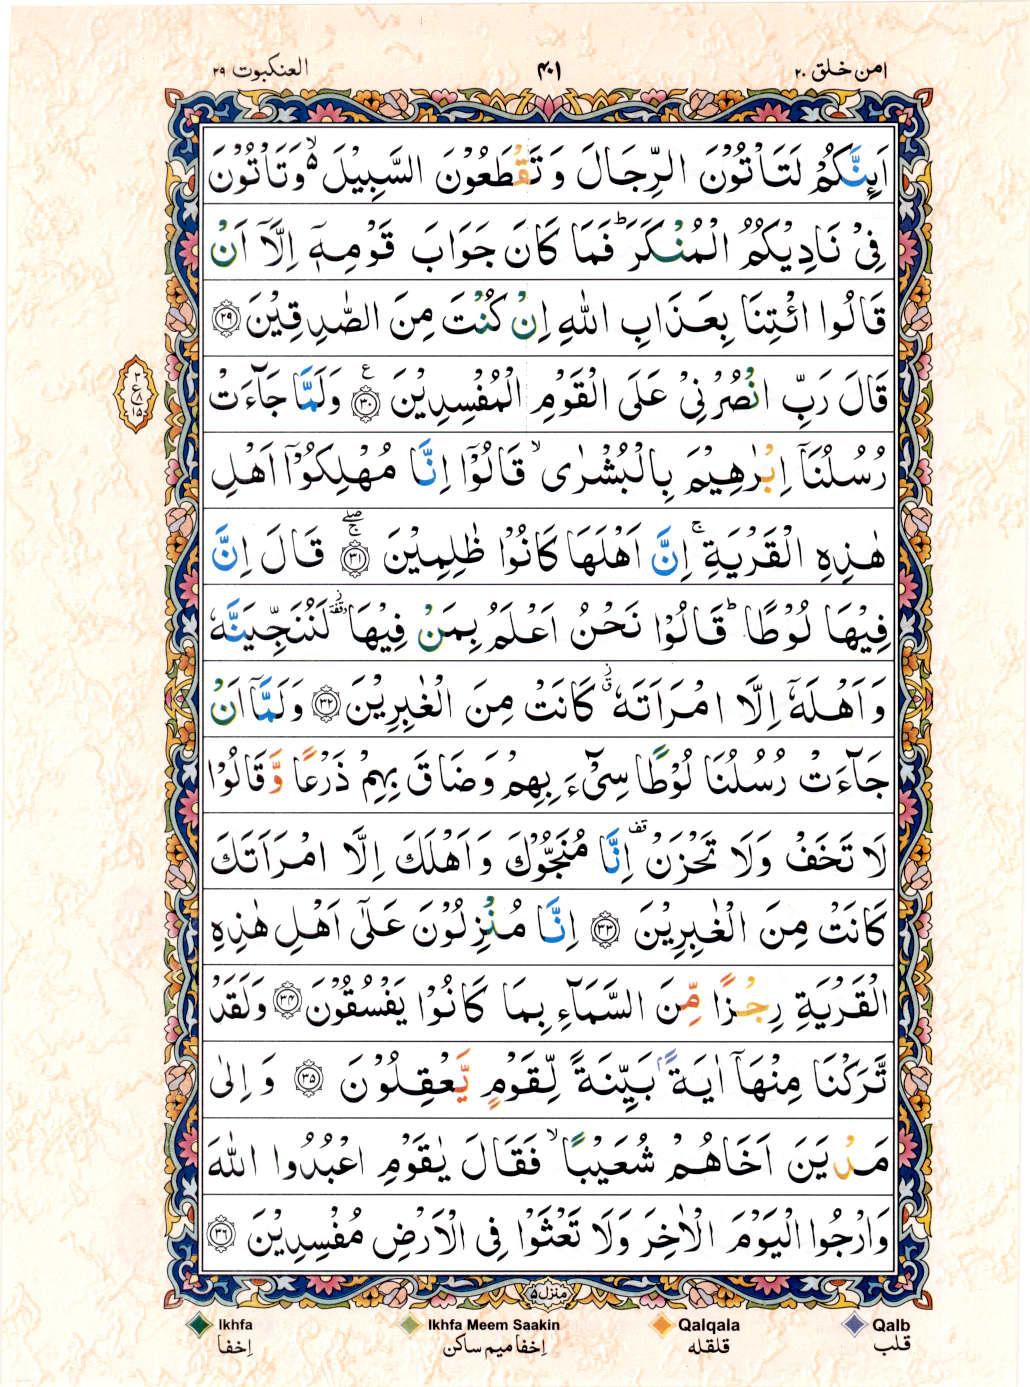 امن خلق ٢٠
٤٠١
العنكبوت ٢٩
اَىِٕنَّكُمْ لَتَاْتُوْنَ الرِّجَالَ وَ تَقْطَعُوْنَ السَّبِيْلَ ۙ۬ وَتَاْتُوْنَ
فِىْ نَادِيْكُمُ الْمُنْكَرَ ؕ فَمَا كَانَ جَوَابَ قَوْمِهٖۤ اِلَّاۤ اَنْ
قَالُوا ائْتِنَا بِعَذَابِ اللّٰهِ اِنْ كُنْتَ مِنَ الصّٰدِقِيْنَ ﴿٢٩﴾
قَالَ رَبِّ انْصُرْنِىْ عَلَى الْقَوْمِ الْمُفْسِدِيْنَ ﴿٣٠﴾ع وَلَمَّا جَآءَتْ
رُسُلُنَاۤ اِبْرٰهِيْمَ بِالْبُشْرٰى ۙ قَالُوْۤا اِنَّا مُهْلِكُوْۤا اَهْلِ
هٰذِهِ الْقَرْيَةِ ۚ اِنَّ اَهْلَهَا كَانُوْا ظٰلِمِيْنَ ﴿٣١﴾ۖۚ قَالَ اِنَّ
فِيْهَا لُوْطًا ؕ قَالُوْا نَحْنُ اَعْلَمُ بِمَنْ فِيْهَا ٙ لَنُنَجِّيَنَّهٗ
وَ اَهْلَهٗۤ اِلَّا امْرَاَتَهٗ ؗ كَانَتْ مِنَ الْغٰبِرِيْنَ ﴿٣٢﴾ وَلَمَّاۤ اَنْ
جَآءَتْ رُسُلُنَا لُوْطًا سِىْٓءَ بِهِمْ وَضَاقَ بِهِمْ ذَرْعًا وَّقَالُوْا
لَا تَخَفْ وَلَا تَحْزَنْ قف اِنَّا مُنَجُّوْكَ وَ اَهْلَكَ اِلَّا امْرَاَتَكَ
كَانَتْ مِنَ الْغٰبِرِيْنَ ﴿٣٣﴾ اِنَّا مُنْزِلُوْنَ عَلٰٓى اَهْلِ هٰذِهِ
الْقَرْيَةِ رِجْزًا مِّنَ السَّمَآءِ بِمَا كَانُوْا يَفْسُقُوْنَ ﴿٣٤﴾ وَلَقَدْ
تَّرَكْنَا مِنْهَاۤ اٰيَةًۢ بَيِّنَةً لِّقَوْمٍ يَّعْقِلُوْنَ ﴿٣٥﴾ وَ اِلٰى
مَدْيَنَ اَخَاهُمْ شُعَيْبًا ۙ فَقَالَ يٰقَوْمِ اعْبُدُوا اللّٰهَ
وَارْجُوا الْيَوْمَ الْاٰخِرَ وَلَا تَعْثَوْا فِى الْاَرْضِ مُفْسِدِيْنَ ﴿٣٦﴾
منزل ٥
Ikhfa Ikhfa Meem Saakin Qalqala Qalb
اِخفا اِخفا ميم ساكن قلقله قلب